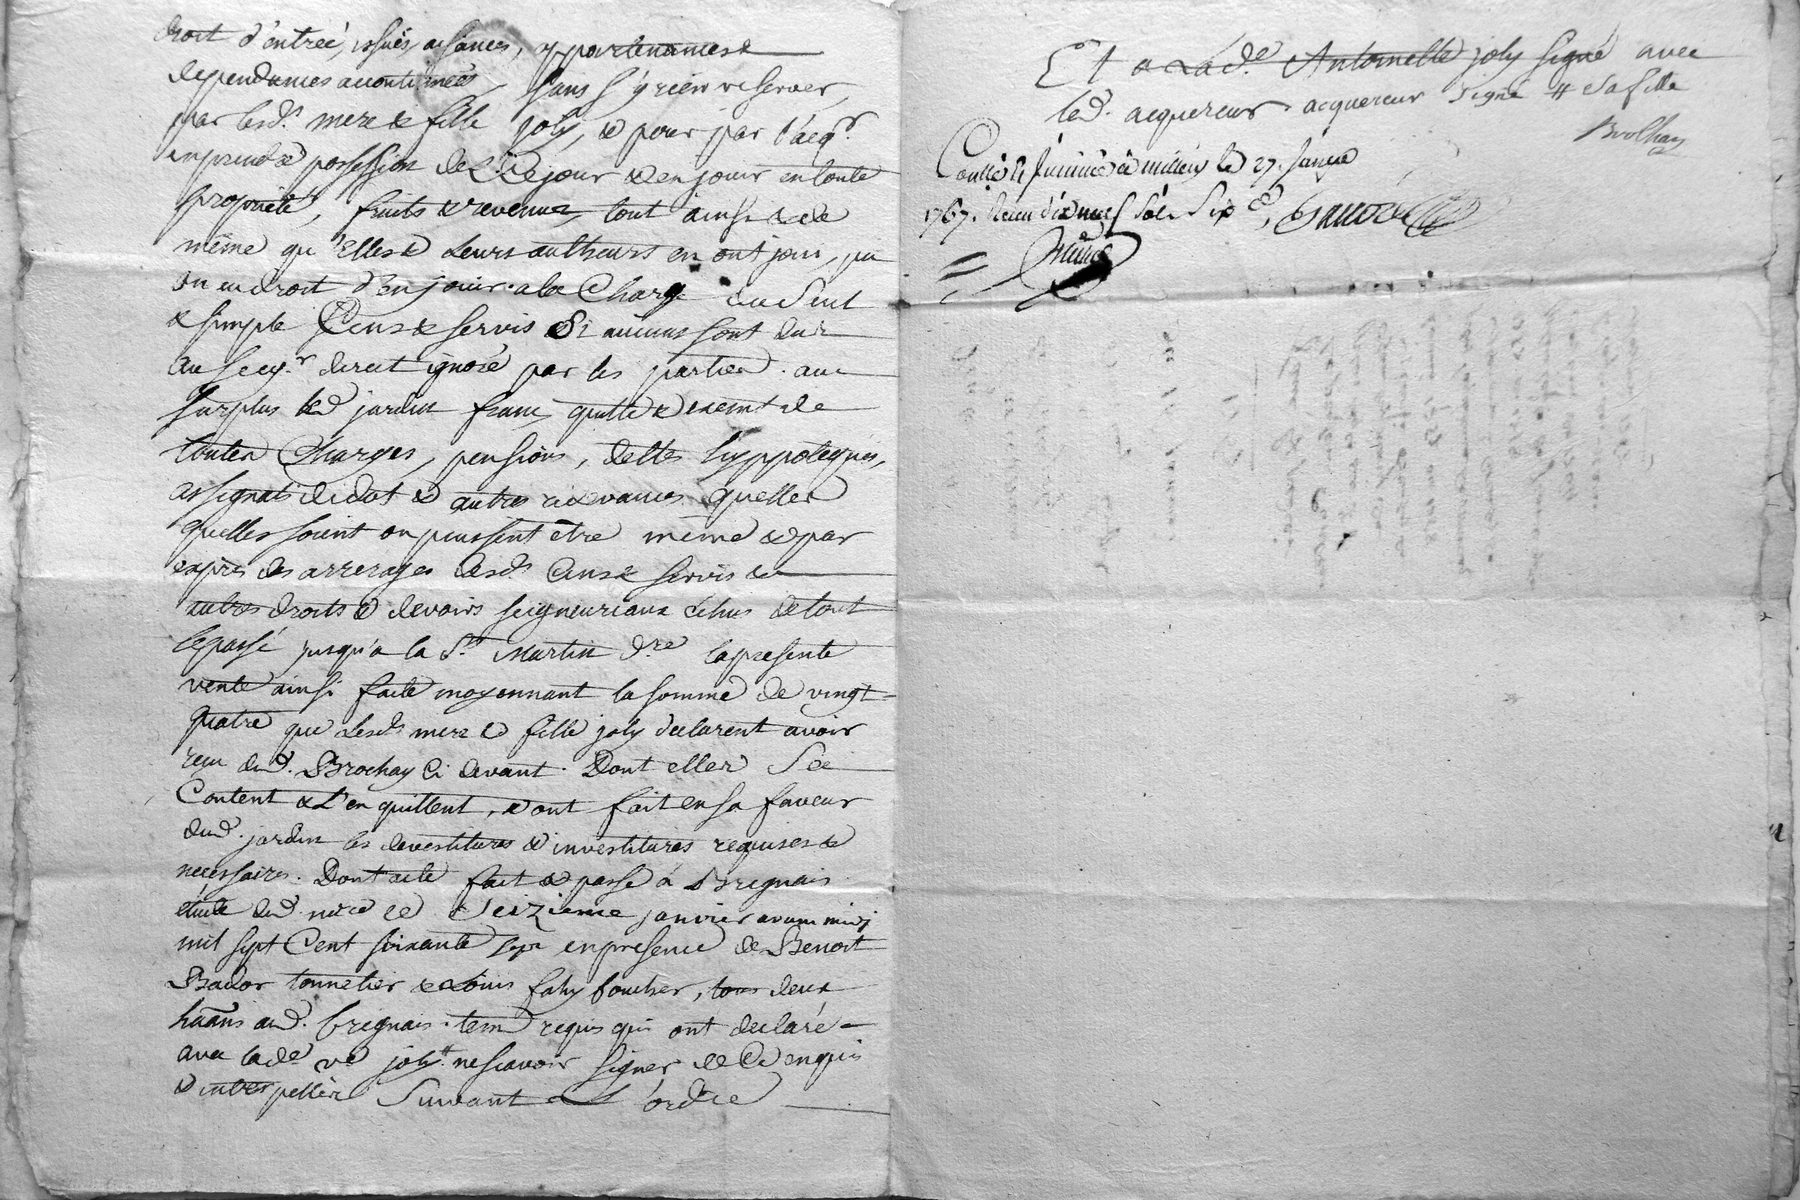 droit d'entrée, issues, aisances, appartenances &
dependances accoutumées, sans s'y rien reserver,
par lesd. mere & fille joly, & pour par l'acqr.
en prendre possession dez ce jour & en jouir en toute
proprieté, fruits & revenus, tout ainsi & de
même qu'elles & leurs autheurs en ont joui, pu
ou eu droit d'en jouir. a la Charge du seul
& simple Cens & servis si aucuns sont dus
au seigr. direct ignoré par les parties. au
surplus led. jardin franc, quitte & exemt de
toutes Charges, pensions, dettes hyppoteques,
assignats de dot & autres redevances quelles
quelles soient ou puissent être même & par
exprès des arrerages desds. Cens & servis &
autres droits & devoirs seigneuriaux echus de tout
le passé jusqu'a la St. Martin dre. la presente
vente ainsi faite moyennant la somme de vingt
quatre que Lesds. mere & fille joly declarent avoir
reçu dud. Brochay Ci devant. Dont elles se
Content & l'en quittent, & ont fait en sa faveur
dud. jardin les devestitures & investitures requises &
necessaires. Dont acte fait & passé à Brignais
étude dud. nore. le seizieme janvier avant midy
mil sept Cent soixante sept en presence de Benoit
Bador tonnelier & Louis faby boucher, tous deux
haans aud. brignais. tem. requis qui ont declaré
avec lade. ve. joly # ne sçavoir signer de Ce enquis
& interpellés Suivant L'ordce
Et a Lade. Antoinette joly signé avec
led. acquereur acquereur signé # & sa fille
Brolhay
Conllé & Juinné à millery le 27. Janvie
1767. Reçu dix neuf sols six d,